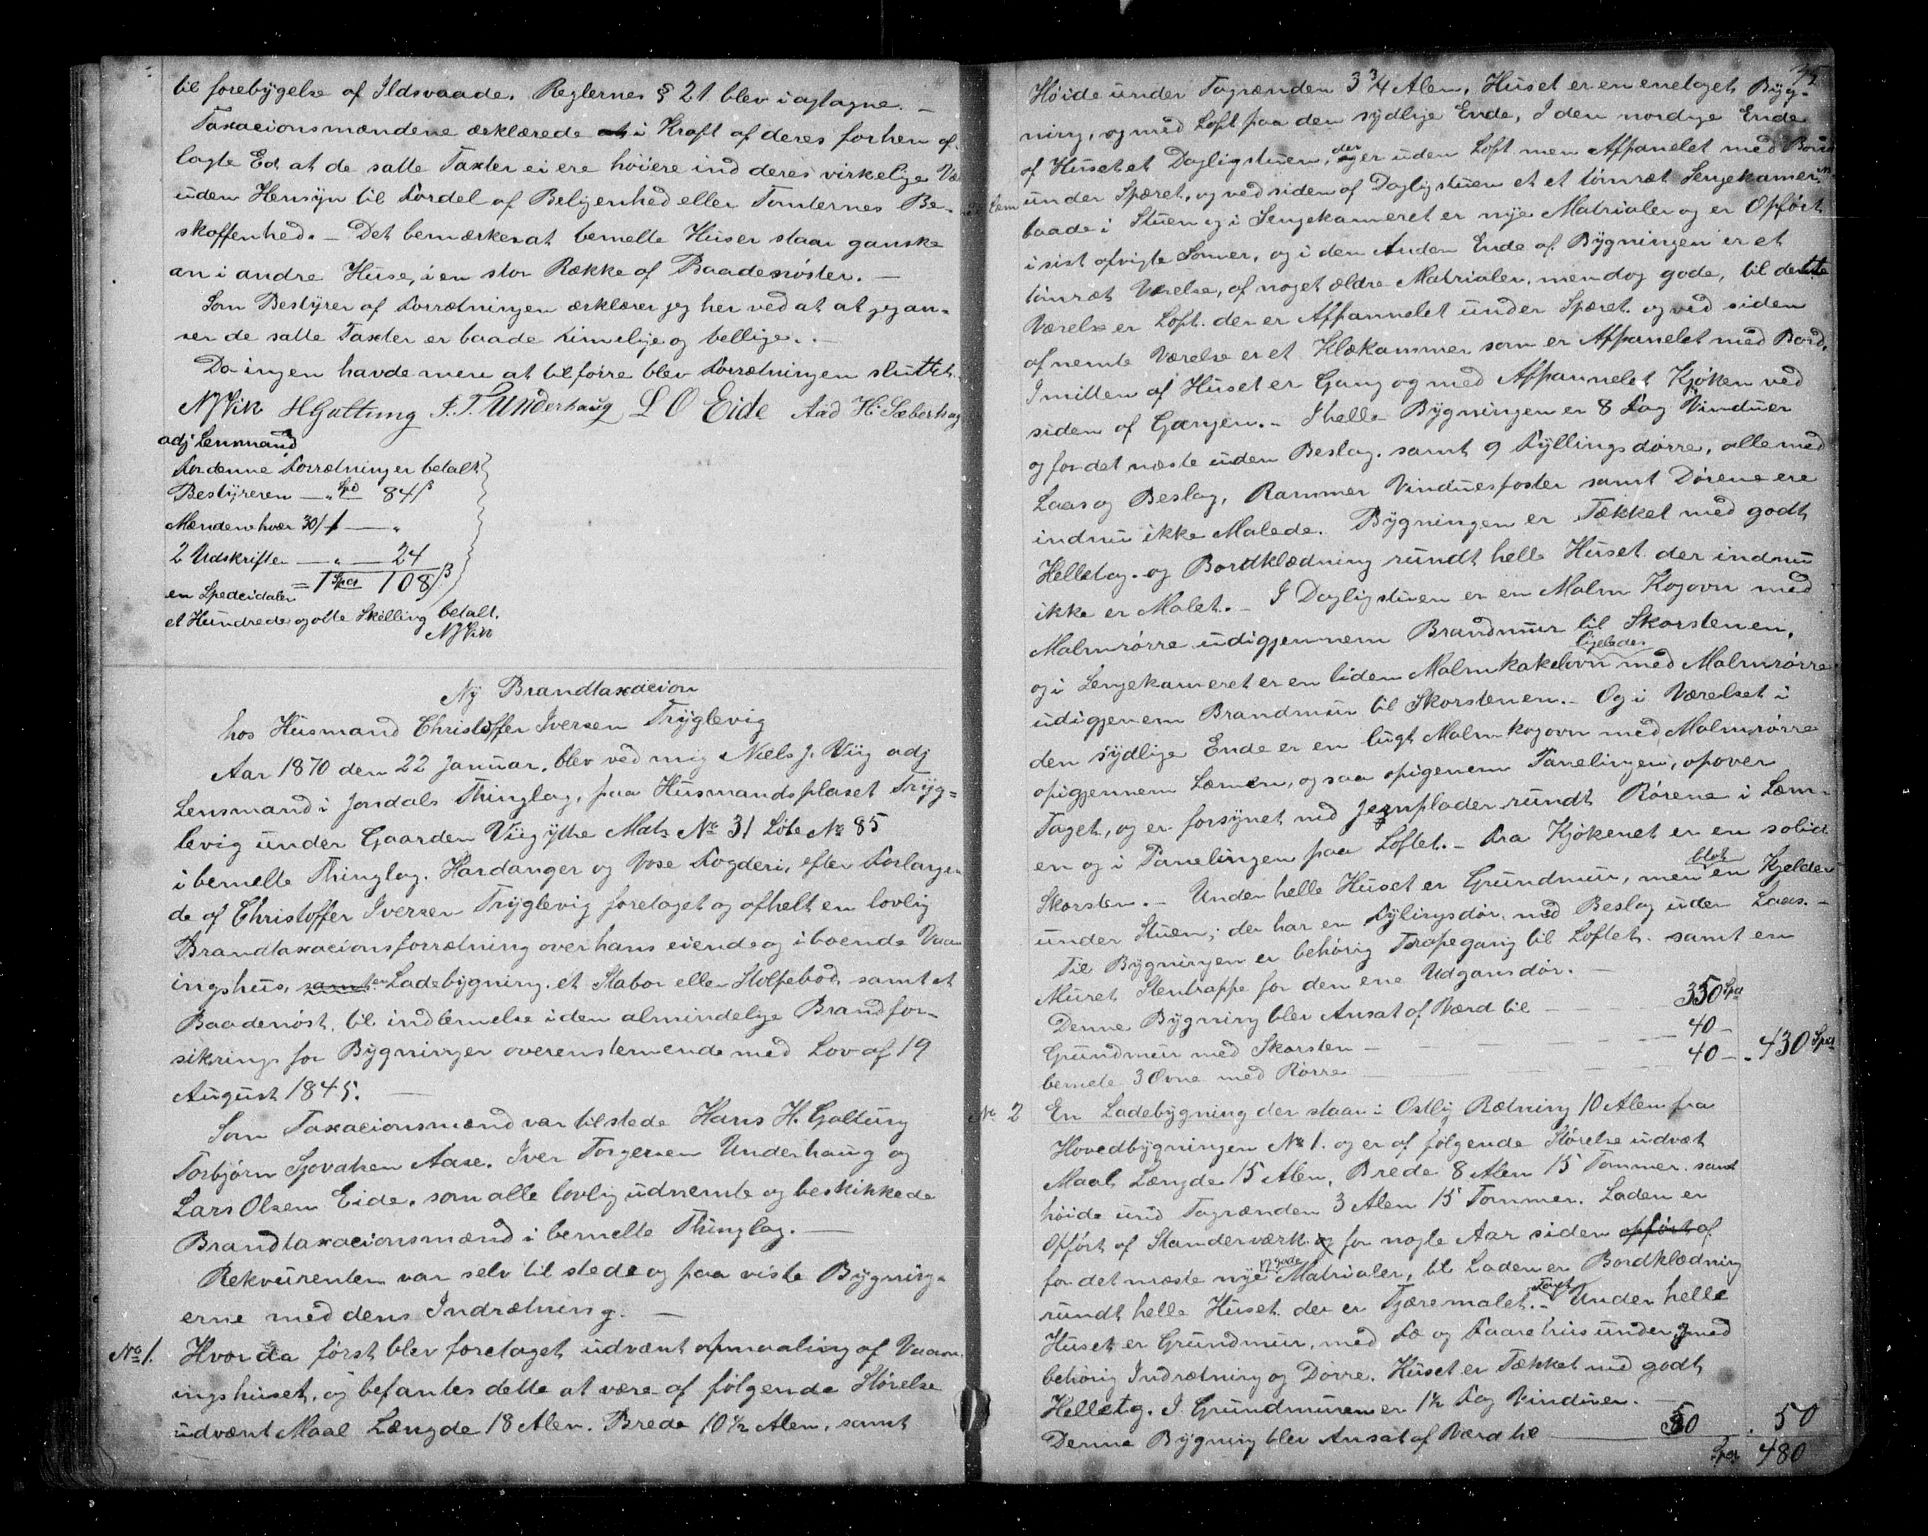 til forebygelse af Ildsvaade. Reglernes § 21 blev iagtagne. —
Taxacionsmændene ærklærede at i Kraft af deres forhen af-
lagte Ed at de satte Taxter ei ere höiere ind deres virkelige Væ
uden Hensyn til Fordel af Beligenhed eller Tomternes Be-
skaffenhed. — Det bemærkes at bemelte Huser staar ganske
an i andre Huse, i en stor Række af Baadenöster. —
Som Bestyrer af Forrætningen ærklærer jeg her ved at at jeg an-
ser de satte Taxter er baade rimelige og bellige. —
Da ingen havde mere at tilföre blev Forrætningen sluttet.
NJVik HGaltung I. T. Underhaug L O Eide Aad H. Sæberhag
adj Lensmand
For denne Forrætning er betalt
Bestyreren — „ Spd 84 β
Mændene hver 30/ 1 — „
2 Udskrifter — „ — 24
= 1 Spd 108 β
en Specidaler
et Hundrede og otte Skelling betalt.
NJVik
Ny Brandtaxacion
hos Husmand Christoffer Iversen Tryglevig
Aar 1870 den 22 Januar, blev ved mig Niels J. Viig adj
Lensmand i Jondals Thinglag, paa Husmandsplaset Tryg=
levig under Gaarden Viig ytre Mats No 31 Löbe No 85
i bemelte Thinglag. Hardanger og Vose Fogderi, efter Forlangen
de af Christoffer Iversen Tryglevig foretaget og afhelt en lovlig
Brandtaxacionsforrætning over hans eiende og iboende Vaan
ingshus, samt en Ladebygning, et Stabor eller Stolpebod, samt et
Baadenöst, til indlemelse i den almindelige Brandfor-
sikring for Bygninger overenstemende med Lov af 19
August 1845. —
Som Taxacionsmænd var tilstede Hans H. Galtung
Torbjörn Sjovatsen Aase. Iver Torgersen Underhaug og
Lars Olsen Eide, som alle lovlig udnemte og beskikkede
Brandtaxacionsmænd i bemelte Thinglag. —
Rekvirenten var selv tilstede og paa viste Bygning-
erne med dens Indrætning. —
No 1. Hvor da först blev foretaget udvænt opmaaling af Vaan
ingshuset, og befantes dette at være af fölgende Störelse
udvænt Maal Længde 18 Alen. Brede 10½ Alen, samt
35
Höide under Tagrænden 3 3/4 Alen. Huset er en enetaget Byg-
ning, og med Loft paa den sydlige Ende, I den nordige Ende
af Huset et Dagligstuen, der er uden Loft men Afpanelet med Bord
under Spæret, og ved siden af Dagligstuen et et tömræt Sengekamer,
baade i Stuen og i Sengekameret er nye Matrialer og er Opfört
i sist afvigte Somer, og i den Anden Ende af Bygningen er et
tömræt Værelse, af noget ældre Matrialer, men dog gode, til dette
Værelse er Loft, der er Afpannelet under Spæret, og ved siden
af nemte Værelse er et Klækammer som er Afpanelet med Bord,
I mitten af Huset er Gang og med Afpannelet Kjöken ved
siden af Gangen. — I helle Bygningen er 8 Fag Vinduer
og for det næste uden Beslag, samt 9 Fyllingsdörre, alle med
Laas og Beslag, Rammer Vinduesposter samt Dörene ere
indnu ikke Malede. Bygningen er Tækket med godt
Helletag, og Bordklædning rundt helle Huset der indnu
ikke er Malet. — I Dagligstuen er en Malm Kogovn med
Malmrörre udigjennem Brandmur til Skorstenen,
og i Sengekameret er en liden Malmkakelovn ligeledes med Malmrörre
udigjenem Brandmur til Skorstenen. — Og i Værelset i
den sydlige Ende er en lugt Malm kogovn med Malmrörre
opigjennem Læmen, og saa opigenem Panelingen, opover
Taget, og er forsynet med Jernplader rundt Rörene i Læm-
en og i Panelingen paa Loftet. — Fra Kjökenet er en solid
Skorsten. — Under helle Huset er Grundmur, men blot en Kjelder
under Stuen, der har en Fylingsdör, med Beslag uden Laas. —
Til Bygningen er behörig Trapegang til Loftet. samt en
Muret Stentrappe for den ene Udgansdör. —
Denne Bygning blev Ansat af Værd til — 350 Spd
Grundmur med Skorsten — 40 —
bemelte 3 Ovne med Rörre — 40 — . 430 Spd
No 2 En Ladebygning der staar i Ostlig Rætning 10 Alen fra
Hovedbygningen No 1. og er af fölgende Störelse udvæt
Maal Længde 15 Alen, Brede 8 Alen 15 Tommer. samt
höide und Tagrænden 3 Alen 15 Tommer. Laden er
Opfört af Standerværk og for nogle Aar siden opfört af
for det mæste nye og gode Matrialer, til Laden er Bordklædning
rundt helle Huset der er Tjæremalet. — Under helle
Huset er Grundmur, med Fæ og Faarehus under med
behörig Indrætning og Dörre. Huset er Tækket med godt
Helletag. I Grundmuren er 1½ Fag Vinduer. —
Denne Bygning blev Ansat af Værd til — 50 . 50
Spd 480